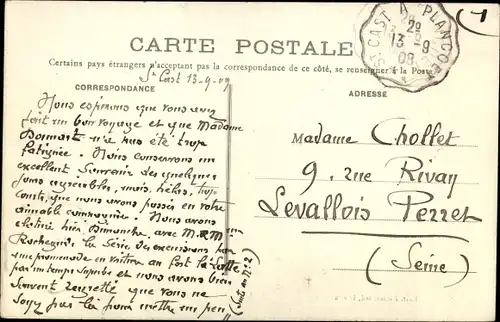 ST CAST A PLANCOET
2e
13-9
08
CARTE POSTALE
Certains pays étrangers n'acceptant pas la correspondance de ce côté, se renseigner à la Poste
St Cast 13-9-09
CORRESPONDANCE
ADRESSE
Nous espérons que vous avez
fait un bon voyage et que Madame
n'a pas été trop
fatiguée. Nous conservons un
excellent souvenir des quelques
jours agréables, mais, hélas, trop
courts, que nous avons passés en votre
aimable compagnie. Nous avons
hier Dimanche, avec M. & Mme
la Série des excursions par
une promenade en voiture au fort la Latte
par un temps superbe et nous avons bien
souvent regretté que vous ne
soyez pas là pour mettre un peu
(Suite au No 2)
Madame Chollet
9, rue Rivay
Levallois Perret
(Seine)